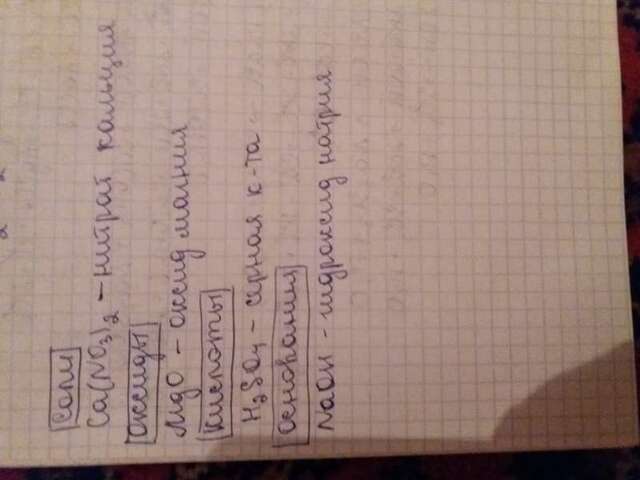 Соли
Ca(NO₃)₂ – нитрат кальция
Оксиды
MgO – оксид магния
Кислоты
H₂SO₄ – серная к-та
Основания
NaOH – гидроксид натрия